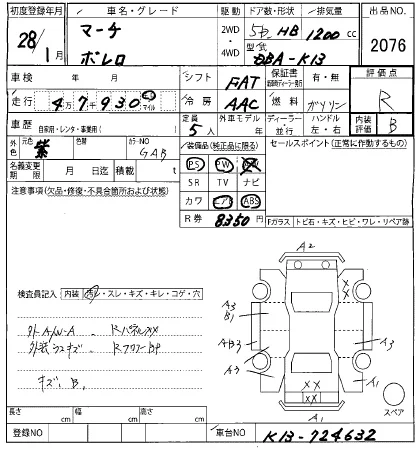 初度登録年月 車名・グレード 駆動 ドア数・形状 排気量 出品No.
28年 1月 マーチ ボレロ 2WD・4WD 5D HB 1200cc 2076
型式 DBA-K13
車検 年 月 シフト FAT 保証書 有・無 評価点
走行 4万7千930 マイル 冷房 AAC 燃料 ガソリン R
車歴 自家用・レンタ・事業用( ) 定員 5人 外車モデル 年 ディーラー 並行 ハンドル 左・右 内装評価 B
外色 元色 紫 色替 カラーNo GAB 装備品(純正品に限る) セールスポイント(正常に作動するもの)
名義変更期限 月 日迄 積載 t PS PW
注意事項(欠品・修復・不具合箇所および状態) SR TV ナビ
カワ エアB ABS
R券 8350円 Fガラス トビ石・キズ・ヒビ・ワレ・リペア跡
A2
検査員記入 内装 汚レ・スレ・キズ・キレ・コゲ・穴
外A/W-A RパネルXX
A3 B1
XX
外装
AB3 A3
A3
キズ、B1
XX A1
A1 スペア
長さ cm 幅 cm 高さ cm
登録NO 車台No K13-724632